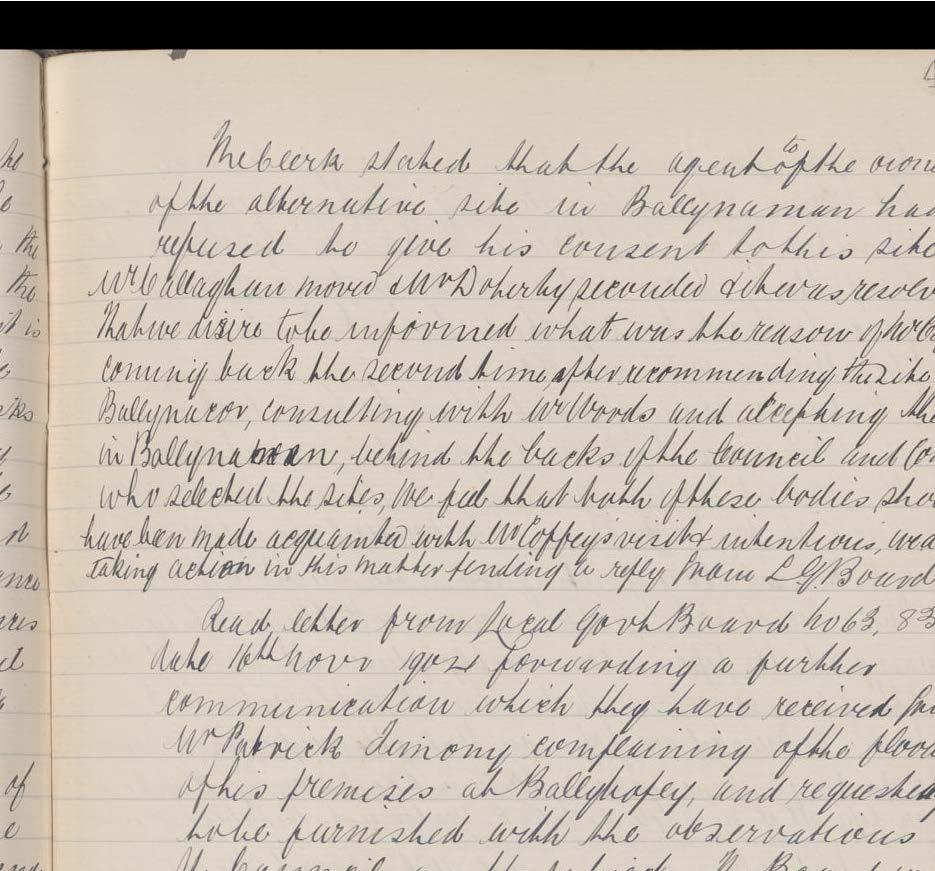 The Clerk stated that the agent to of the
of the alternative site in Ballynaman had
refused to give his consent to this site
Mr Callaghan moved & Mr Doherty seconded & it was resolv
That we desire to be informed what was the reason of Mr
coming back the second time after recommending the site
consulting with Mr Woods and accepting the
in behind the backs of the Council and Co
who selected the sites, We feel that both of these bodies sho
have been made acquainted with Mr Coffey's visit & intentions, we
taking action in this matter pending a reply from L.G. Board
Read letter from Local Govt Board No 63, 83
date 16th Novr forwarding a further
communication which they have received
Mr Patrick Dimony complaining of the flood
of his premises at Ballybofey, and requested
to be furnished with the observations